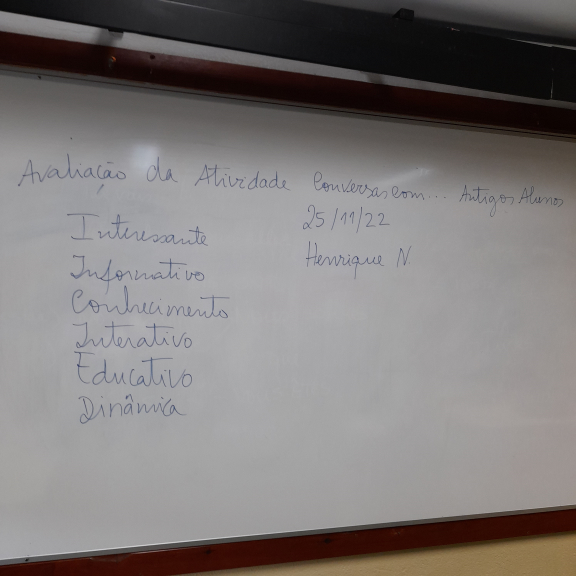 Avaliação da Atividade Conversas com... Antigos Alunos
25/11/22
Henrique N.
Interessante
Informativo
Conhecimento
Interativo
Educativo
Dinâmica